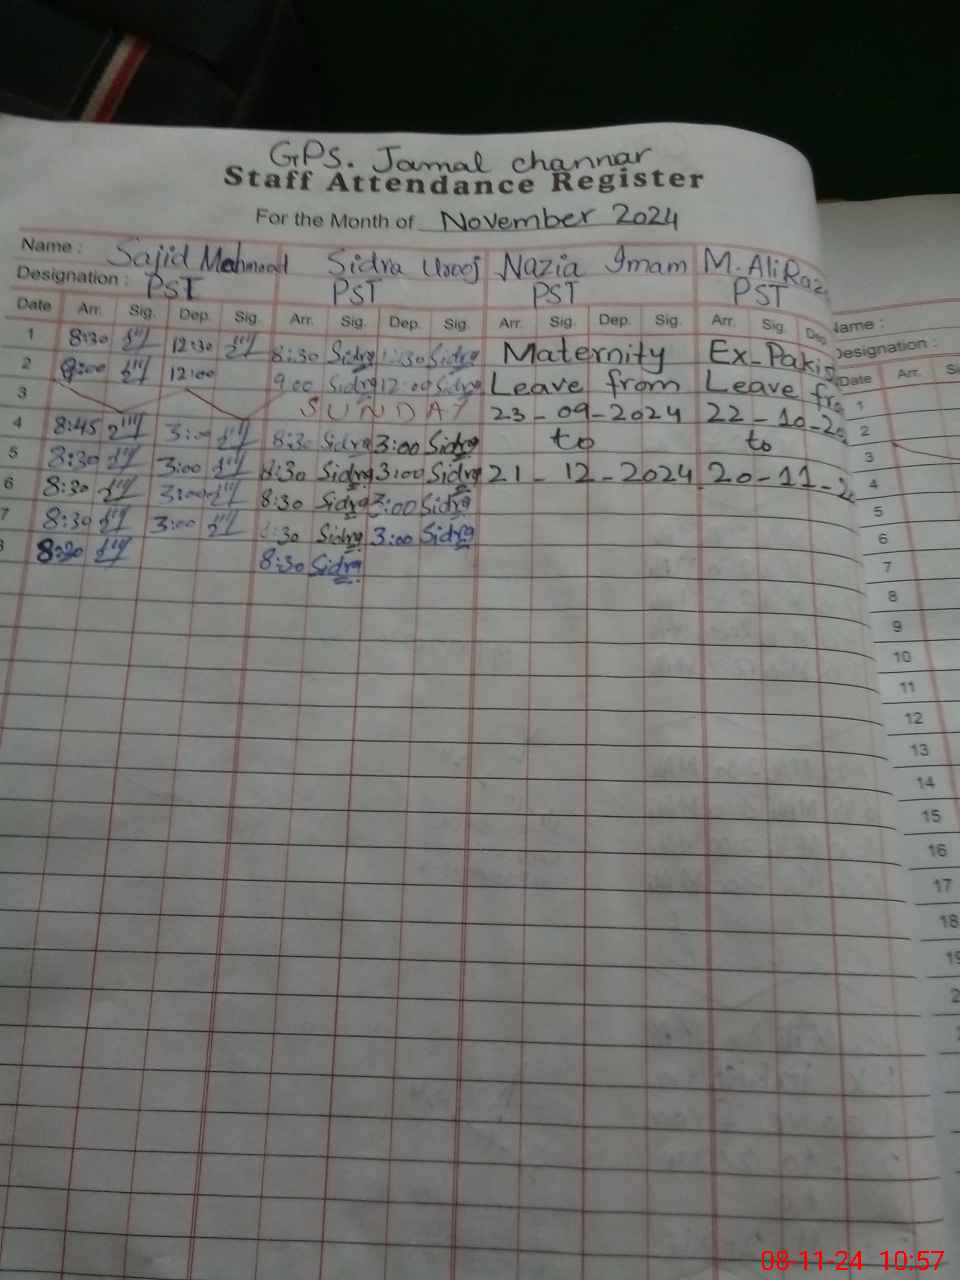 GPS. Jamal channar
Staff Attendance Register
For the Month of November 2024
Name : Sajid Mahmood Sidra Urooj Nazia Imam M. Ali Raz
Designation : PST PST PST PST
Date Arr. Sig. Dep. Sig. Arr. Sig. Dep. Sig. Arr. Sig. Dep. Sig. Arr. Sig. Dep
1 8:30 12:30 8:30 Sidra :30 Sidra Maternity Ex-Pakis
2 9:00 12:00 9:00 Sidra 12:00 Sidra Leave from Leave fro
3 SUNDAY 23-09-2024 22-10-20
4 8:45 3:00 8:30 Sidra 3:00 Sidra to to
5 8:30 3:00 8:30 Sidra 3:00 Sidra 21-12-2024 20-11-2
6 8:30 3:00 8:30 Sidra 3:00 Sidra
7 8:30 3:00 :30 Sidra 3:00 Sidra
8:30 8:30 Sidra
Name :
Designation :
Date Arr. Si
1
2
3
4
5
6
7
8
9
10
11
12
13
14
15
16
17
18
19
2
08-11-24 10:57